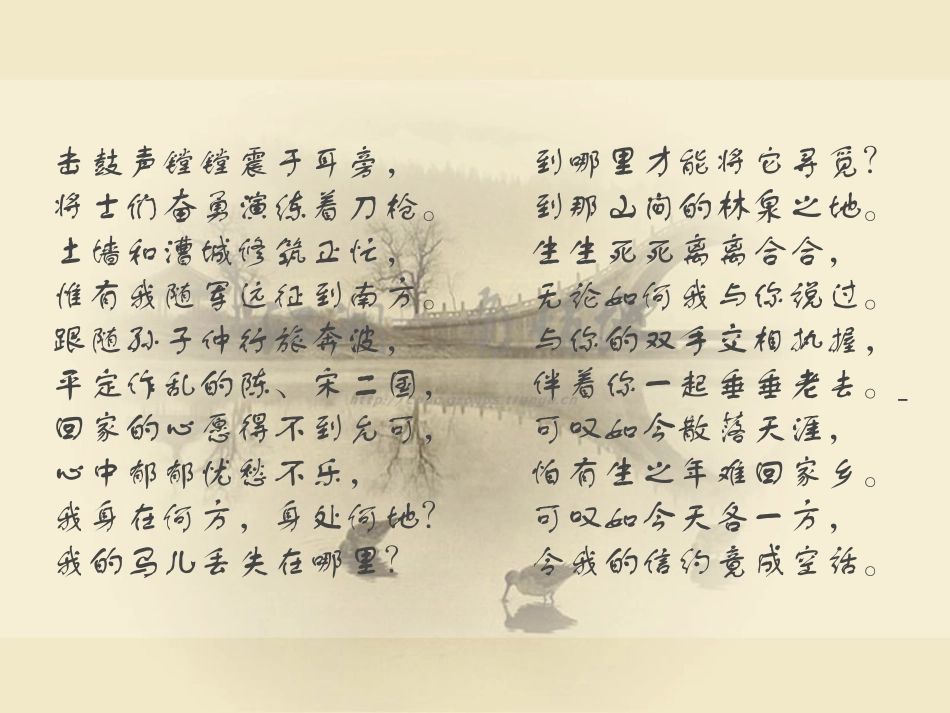 击鼓声镗镗震于耳旁，
将士们奋勇演练着刀枪。
土墙和漕城修筑正忙，
惟有我随军远征到南方。
跟随孙子仲行旅奔波，
平定作乱的陈、宋二国，
回家的心愿得不到允可，
心中郁郁忧愁不乐，
我身在何方，身处何地？
我的马儿丢失在哪里？
到哪里才能将它寻觅？
到那山间的林泉之地。
生生死死离离合合，
无论如何我与你说过。
与你的双手交相执握，
伴着你一起垂垂老去。
可叹如今散落天涯，
怕有生之年难回家乡。
可叹如今天各一方，
令我的信约竟成空话。